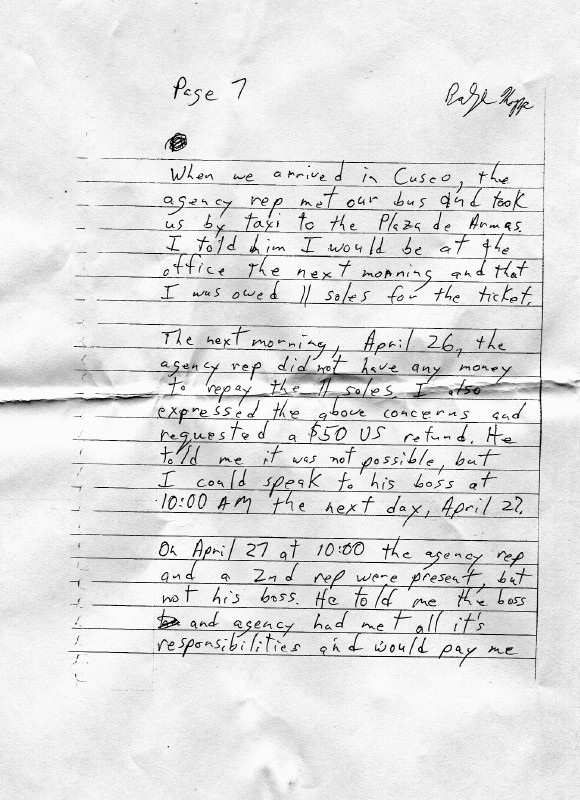 Page 7
When we arrived in Cusco, the
agency rep met our bus and took
us by taxi to the Plaza de Armas.
I told him I would be at the
office the next morning and that
I was owed 11 soles for the ticket.
The next morning, April 26, the
agency rep did not have any money
to repay the 11 soles. I also
expressed the above concerns and
requested a $50 US refund. He
told me it was not possible, but
I could speak to his boss at
10:00 AM the next day, April 27.
On April 27 at 10:00 the agency rep
and a 2nd rep were present, but
not his boss. He told me the boss
and agency had met all it's
responsibilities and would pay me